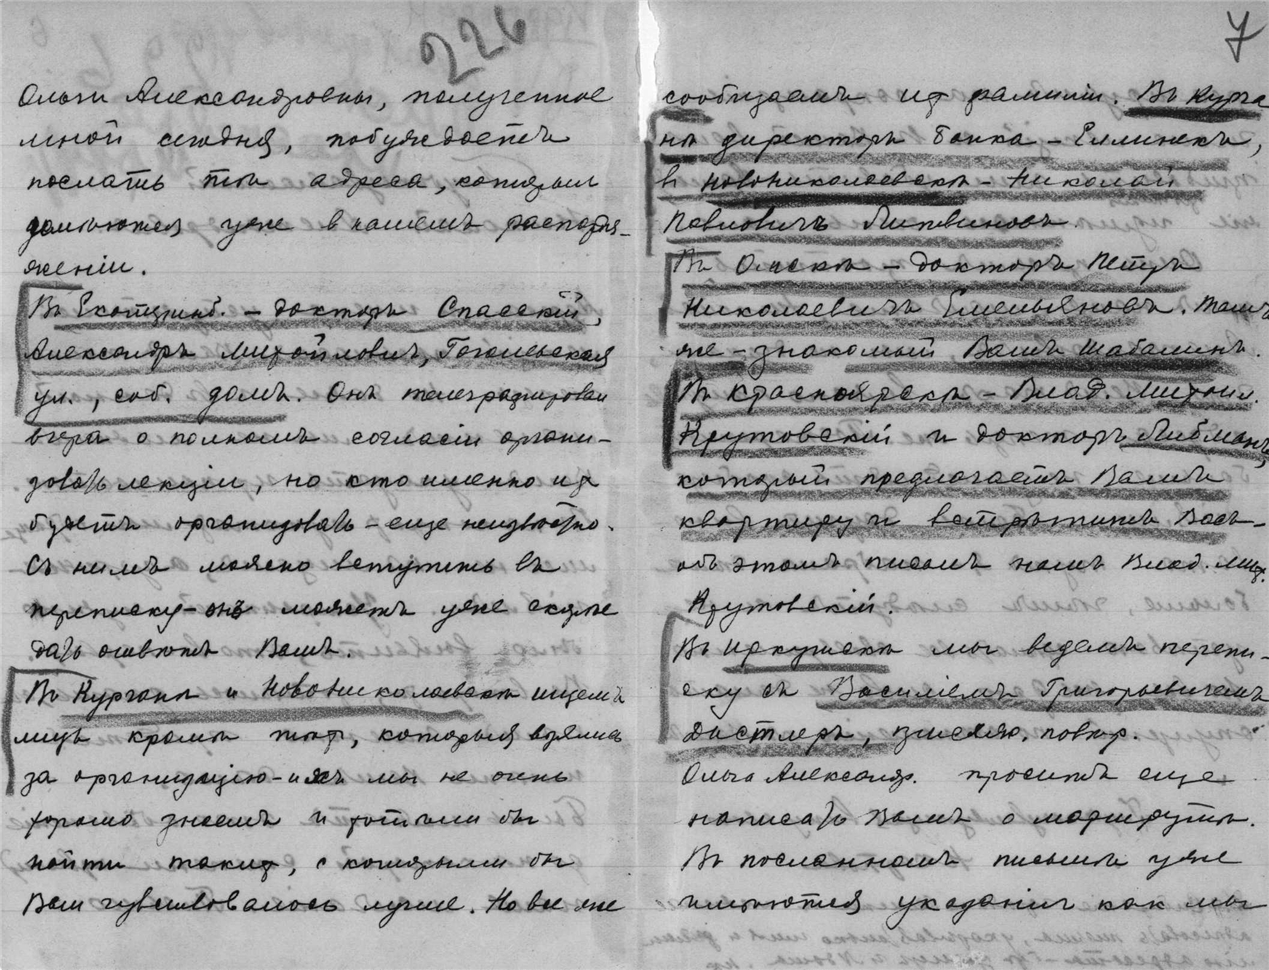 226
Ольги Александровны, полученное
мной сегодня, побуждаетъ
послать тѣ адреса, которые
имѣются уже в нашемъ распоря-
женіи.
Въ Екатеринб. – докторъ Спасскій,
Александръ Михайловичъ, Гоголевская
ул., соб. домъ. Онъ телеграфировалъ
вчера о полномъ согласіи органи-
зовать лекціи, но кто именно их
будетъ организовать – еще неизвѣстно.
Съ нимъ можно вступить въ
переписку – онъ можетъ уже скорѣе
дать отвѣтъ Вамъ.
Въ Курганѣ и Новониколаевскѣ ищемъ
лицъ кромѣ тѣхъ, которыя взялись
за организацію – ихъ мы не очень
хорошо знаемъ и хотѣли бы
найти такихъ, с которыми бы
Вам чувствовалось лучше. Но все же
7
сообщаемъ их фамиліи. Въ Курга
нѣ директоръ банка – Еллинекъ,
в Новониколаевскѣ – Николай
Павловичъ Литвиновъ.
Въ Омскѣ – докторъ Петръ
Николаевичъ Емельяновъ. Тамъ
же – знакомый Вамъ Шабалинъ.
Въ Красноярскѣ – Влад. Михаил.
Крутовскій и докторъ Либманъ,
который предлагаетъ Вамъ
квартиру и встрѣтитъ Васъ –
объ этомъ писалъ намъ Влад. Мих.
Крутовскій.
Въ Иркутскѣ мы ведемъ перепи-
ску съ Василіемъ Григорьевичемъ
Дистлеръ, повѣр.
Ольга Александр. проситъ еще
написать Вамъ о маршрутѣ.
Въ посланномъ письмѣ уже
имѣются указанія как мы